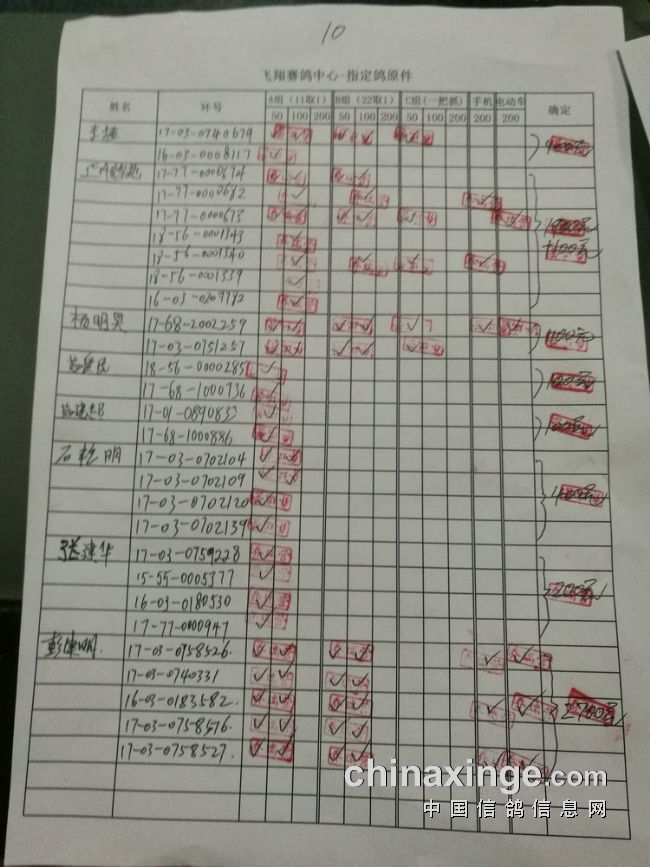 10
飞翔赛鸽中心-指定鸽原件
姓名 环号 A组（11取1） B组（22取1） C组（一把抓） 手机 电动车 确定
50 100 200 50 100 200 50 100 200 200 200
17-03-0740679
16-03-0008117
17-77-0000674
17-77-0000682
17-77-0000673
18-56-0001343
18-56-0001340
18-56-0001339
16-03-0209782
杨明昊 17-68-2002259
17-03-0751257
18-56-0000285
17-68-1000736
17-01-0890833
17-68-1000886
石乾明 17-03-0702104
17-03-0702109
17-03-0702120
17-03-0702139
张建华 17-03-0759228
15-55-0005377
16-03-0180530
17-77-0000947
彭建明. 17-03-0758526.
17-03-0740331
16-03-0183582.
17-03-0758576
17-03-0758527.
chinaxinge.com
中国信鸽信息网